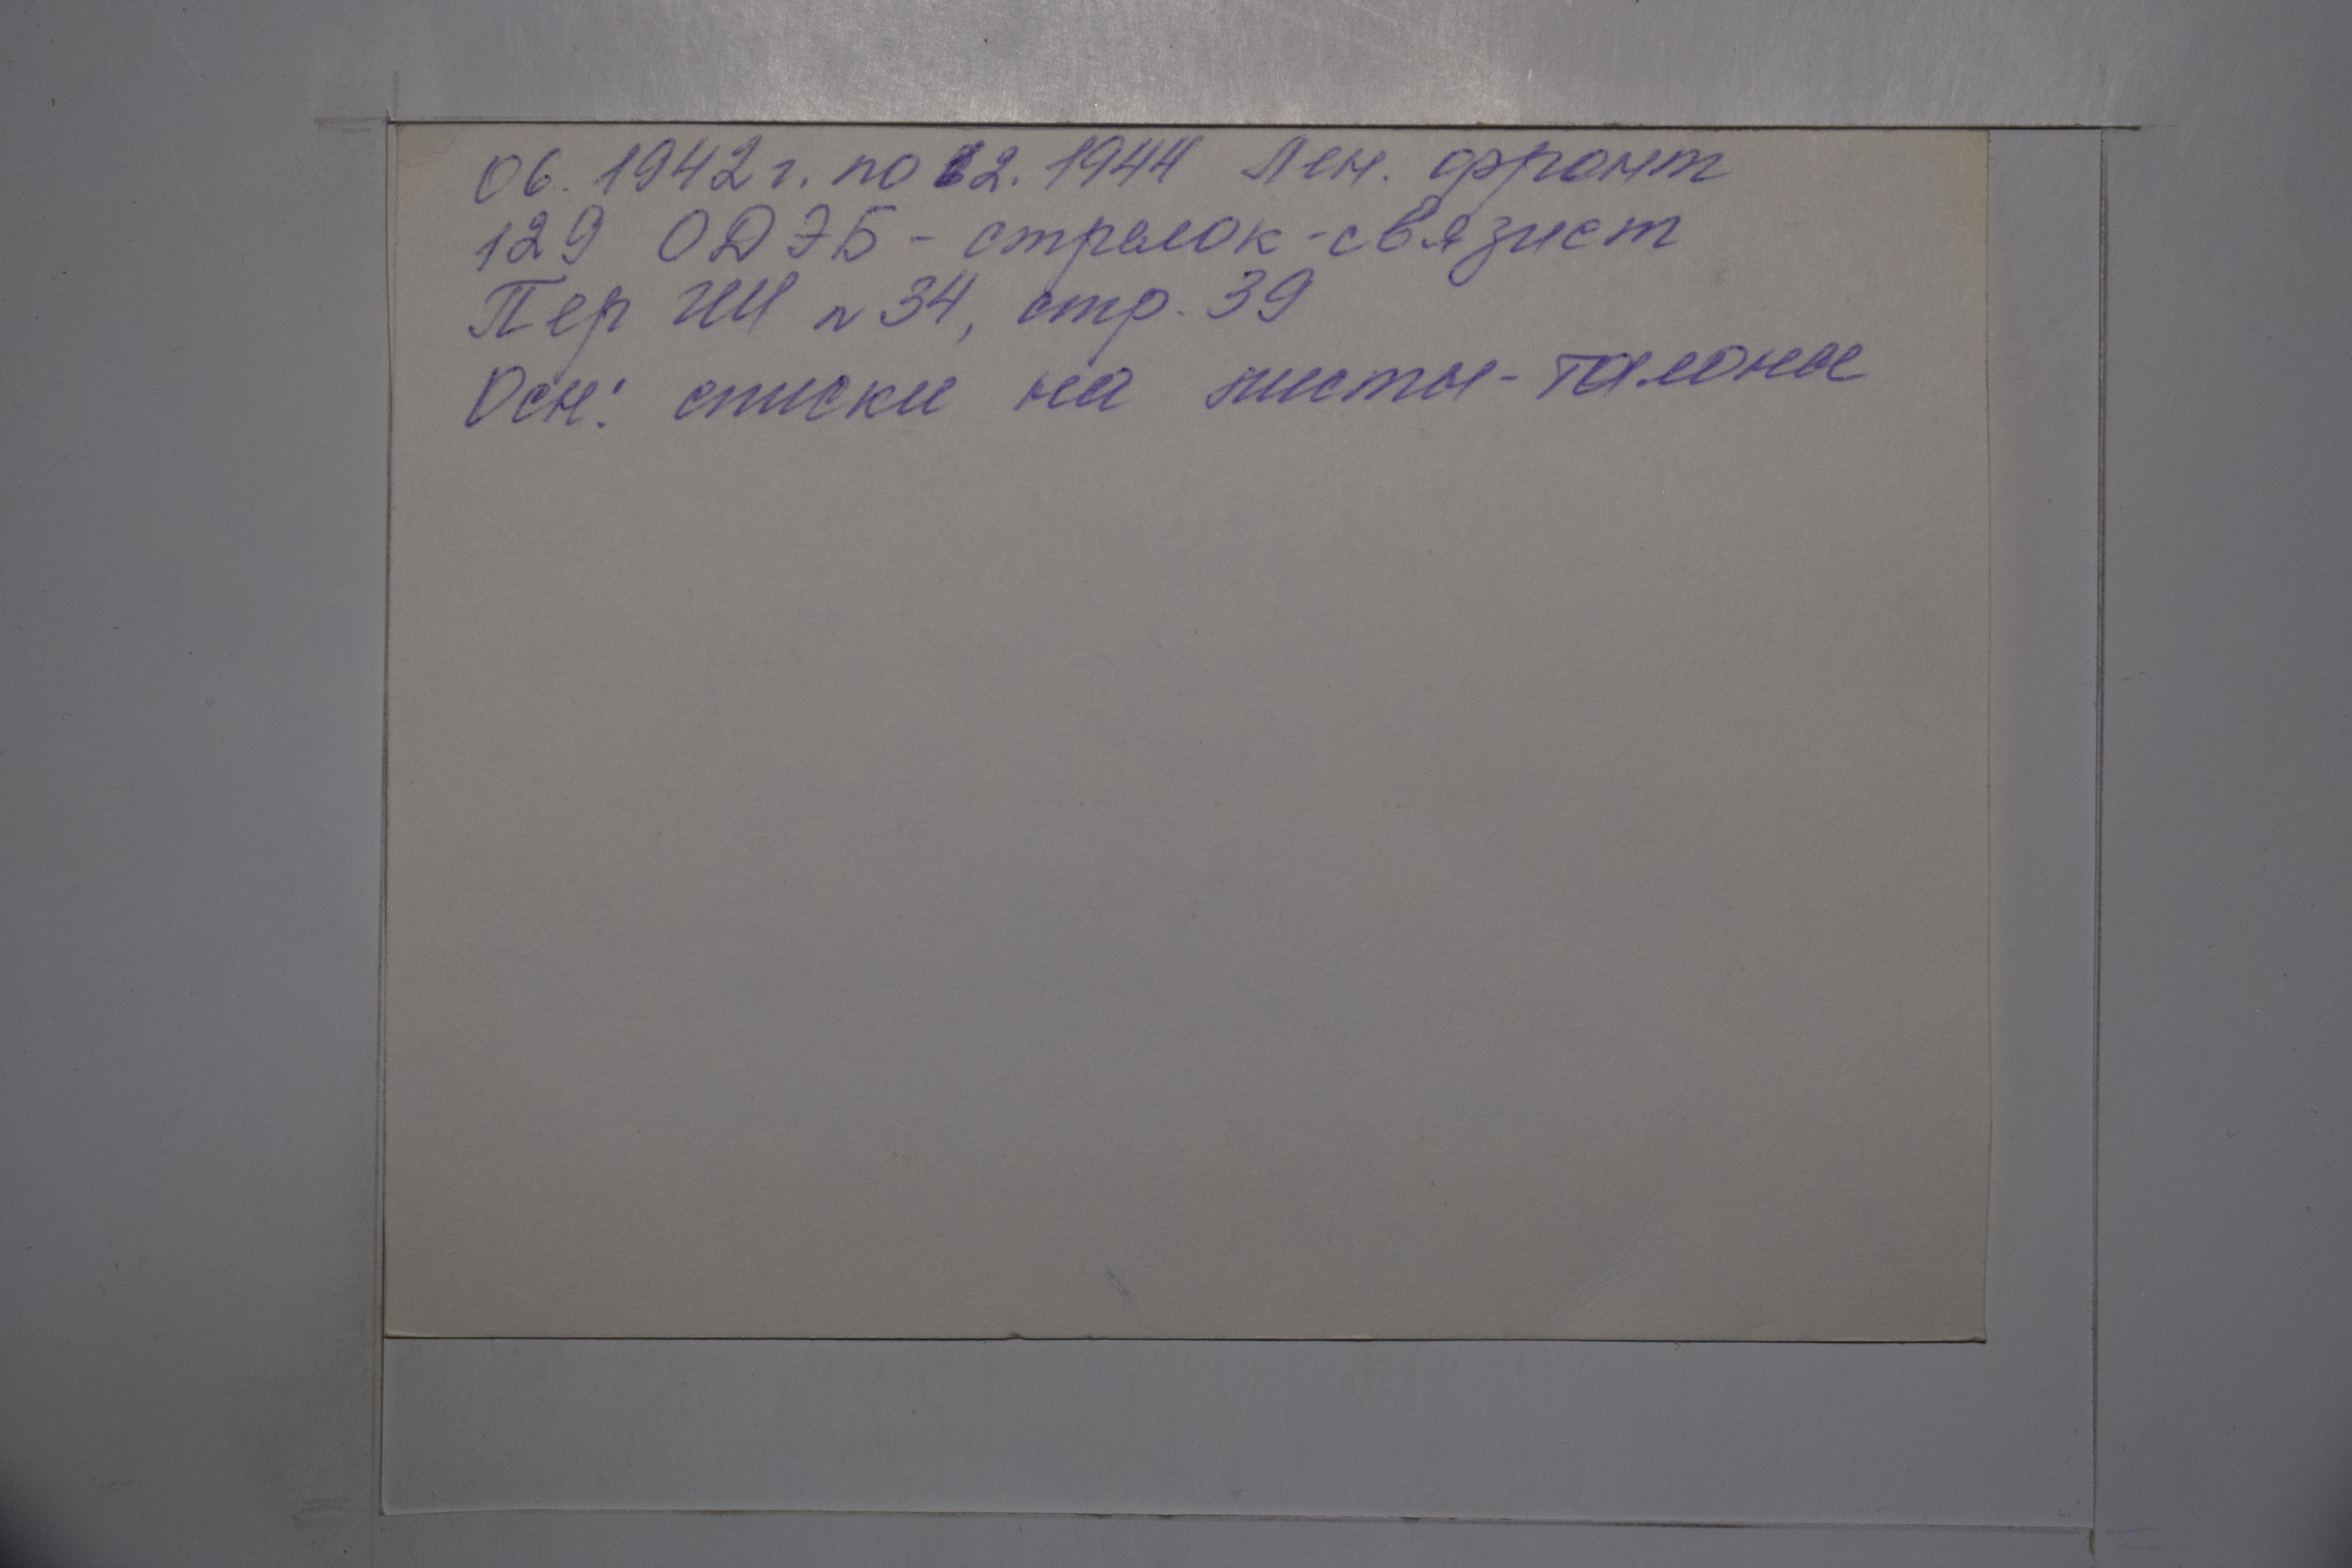 06. 1942 г. по 12. 1944 Лен. фронт
129 ОДЭБ - стрелок-связист
Пер № 34, стр. 39
Осн: списки на листы-талоны